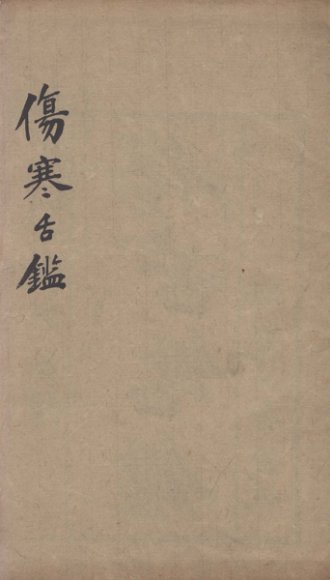 傷寒舌鑑